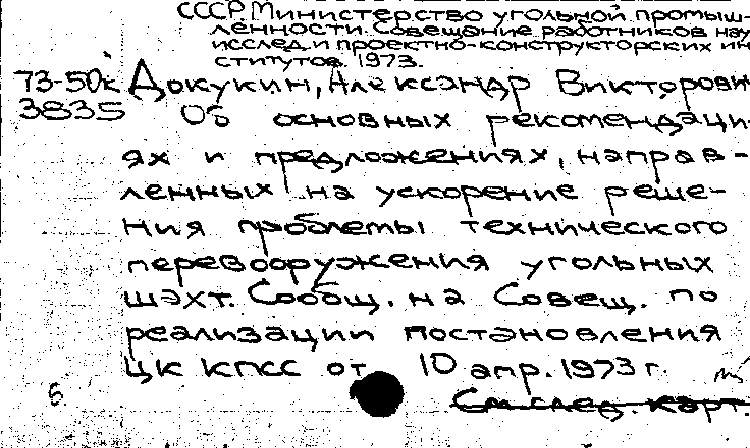 СССР. Министерство угольной промыш-
ленности. Совещание работников нау
исслед. и проектно-конструкторских ин
ститутов. 1973.
73-50к Докукин, Александр Викторови
3835 Об основных рекомендаци-
ях и предложениях, направ-
ленных на ускорение реше-
ния проблемы технического
перевооружения угольных
шахт. Сообщ. на Совещ. по
реализации постановления
ЦК КПСС от 10 апр. 1973 г.
См. след. карт